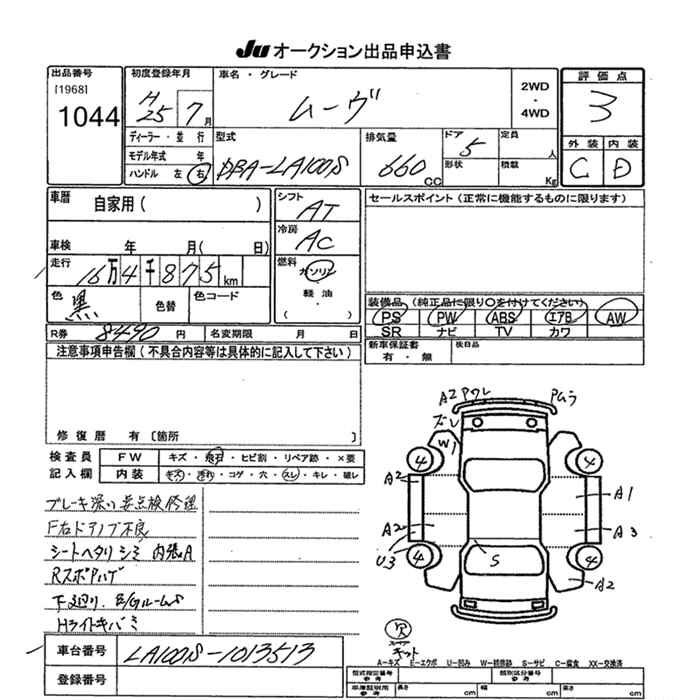 Ju オークション出品申込書
出品番号
[1968]
1044
初度登録年月
H25 7月
車名・グレード
ムーヴ
2WD
・
4WD
評価点
3
外装 内装
C D
ディーラー・並行
モデル年式 年
ハンドル 左 右
型式
DBA-LA100S
排気量
660 CC
ドア 5
形状
定員 人
積載 Kg
車歴
自家用( )
車検 年 月( 日)
走行
16万4千875km
色 黒
色替
色コード
R券 8490円
名変期限 月 日
シフト
AT
冷房
AC
燃料
ガソリン
軽油
・( )
セールスポイント(正常に機能するものに限ります)
装備品(純正品に限り○を付けてください)
PS PW ABS エアB AW
SR ナビ TV カワ
新車保証書
有・無
後日品
注意事項申告欄(不具合内容等は具体的に記入して下さい)
修復歴 有〔箇所 〕
検査員
記入欄
FW キズ・飛石・ヒビ割・リペア跡・×要
内装 キズ・汚れ・コゲ・穴・スレ・キレ・破レ
ブレーキ渋い 要点検修理
F右ドアノブ不良
シートヘタリ シミ 内張A
RスポAハゲ
下廻り、E/Gルームサ
Hライトキバミ
A2 Pワレ
Pムラ
ズレ
W1
4 4
A2
A1
A2
A3
U3
4 4
S
A2
欠
キット
A=キズ E=エクボ U=凹み W=補修跡 S=サビ C=腐食 XX=交換済
車台番号
LA100S-1013513
登録番号
型式指定番号
参考
類別区分番号
参考
車庫証明用
参考
長さ cm
幅 cm
高さ cm